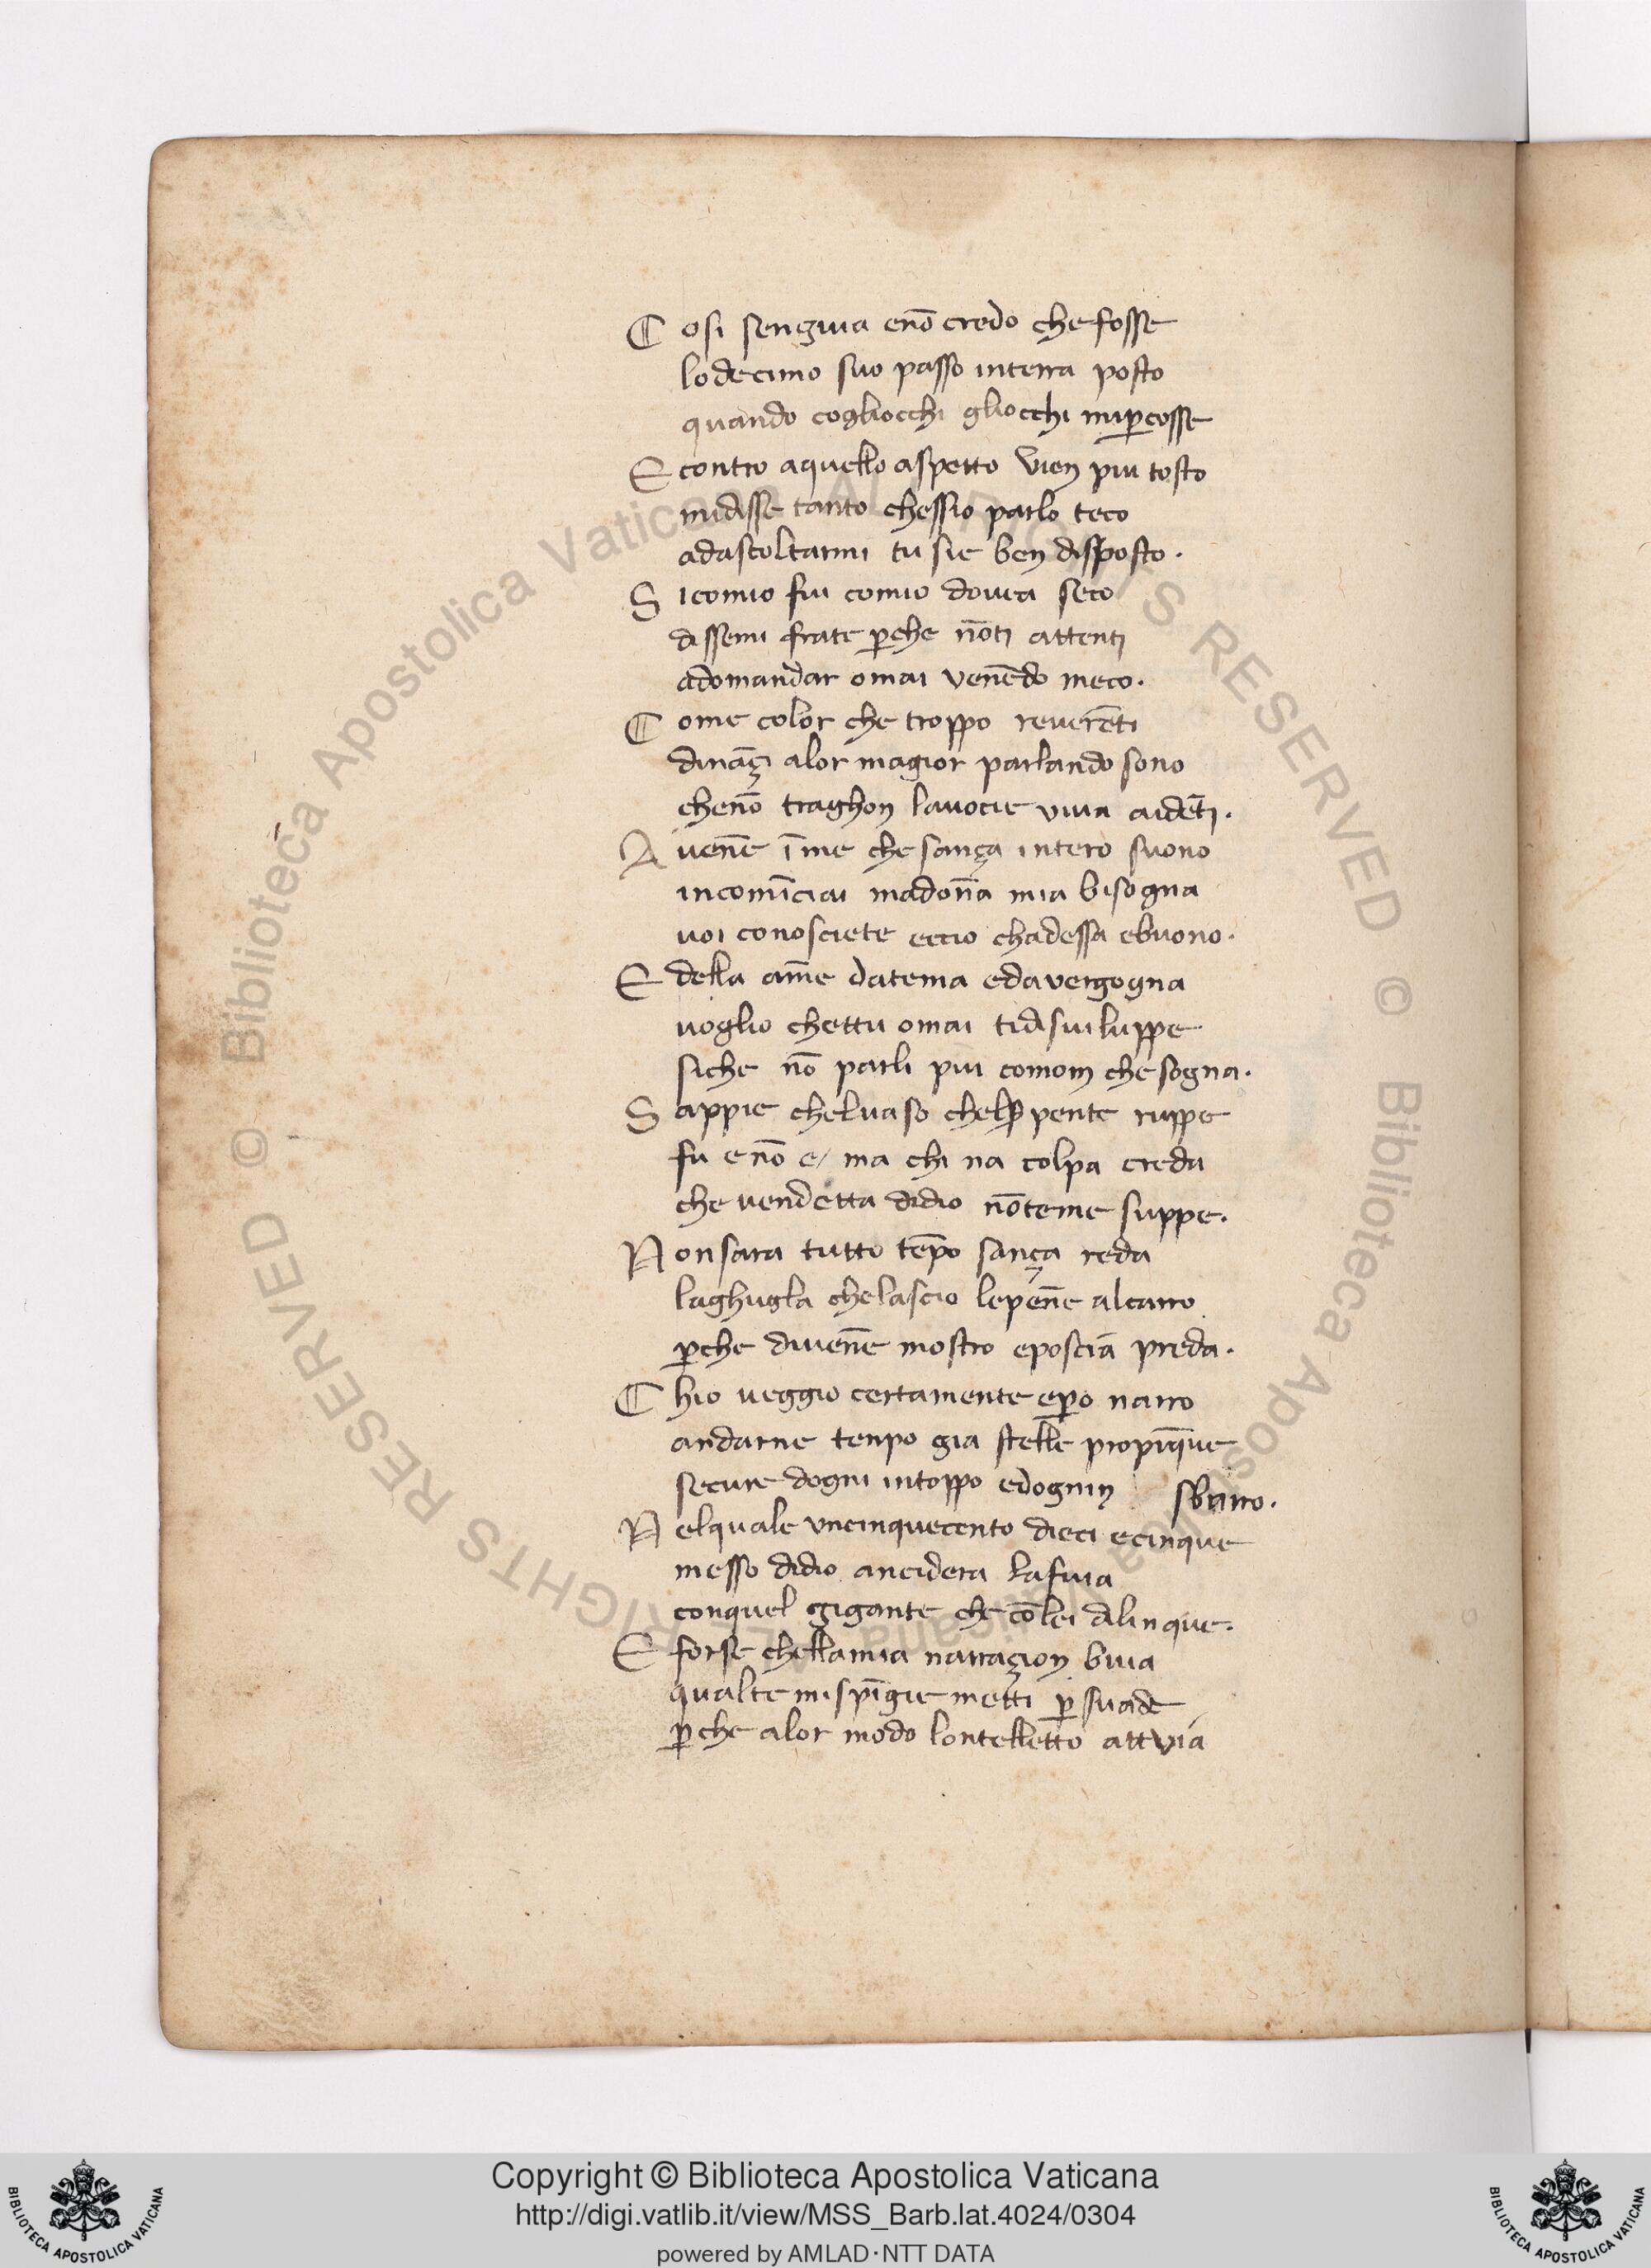 C osi sengiua enō credo che fosse
lo decimo suo passo interra posto
quando cogliocchi gliocchi miꝑcosse
E contro aquello aspetto vien piu tosto
midisse tanto chessio parlo teco
adascoltarmi tu sie ben disposto.
S icomio fui comio douea seco
dissemi frate ꝑche nōti attenti
adomandar omai venēdo meco.
C ome color che troppo reuerēti
dināçi alor magior parlando sono
chenō traghon lauocie viua aidēti.
A uenē īme che sança intero suono
incomīciai madonā mia bisogna
uoi conosciete eccio chadessa ebuono.
E della amē datema edavergogna
uoglio chettu omai tidisuiluppe
siche nō parli piu comom chesogna.
S appie cheluaso chelsꝑpente ruppe
fu enō e / ma chi na colpa creda
che uendetta didio nōteme suppe.
N on sara tutto tēpo sança reda
laghugla chelascio lepenē alcarro
ꝑche diuenē mostro eposcia preda.
C hio veggio certamente eꝑo narro
andarne tenpo gia stelle propīque
secure dogni intoppo edognin sbarro.
N elquale vncinquecento dieci ecinque
messo didio anciderà lafuia
conquel gigante che cōlei dilinque.
E forse chellamia narraçion buia
qualte mispīgie metti ꝑsuade
ꝑche alor modo lontelletto attuia
Copyright © Biblioteca Apostolica Vaticana
http://digi.vatlib.it/view/MSS_Barb.lat.4024/0304
powered by AMLAD·NTT DATA
BIBLIOTECA APOSTOLICA VATICANA
BIBLIOTECA APOSTOLICA VATICANA